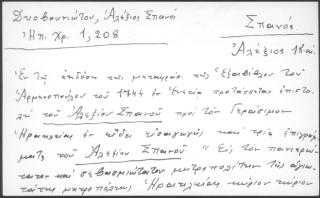 Δυοβουνιώτου, Ἀλέξιος Σπανό
Σπανός
Ἠπ. Χρ. 1, 208
Ἀλέξιος 18 αἰ.
Ἐν τῇ ἐκδόσει τῆς μεταφράσ. τῆς Ἑξαβίβλου τοῦ
Ἁρμενοπούλου τοῦ 1744 ἐν Ἐνετίᾳ προτάσσεται ἐπιστο
λὴ τοῦ Ἀλεξίου Σπανοῦ πρὸς τὸν Γεράσιμον
Ἡρακλείας ἐν εἴδει εἰσαγωγῆς καὶ τρία ἐπιγράμ
ματα τοῦ Ἀλεξίου Σπανοῦ "Εἰς τὸν πανιερώ
τατον καὶ σεβασμιώτατον μητροπολίτην τῆς ἁγιω
τάτης μητροπόλεως Ἡρακλείας κύριον κύριον